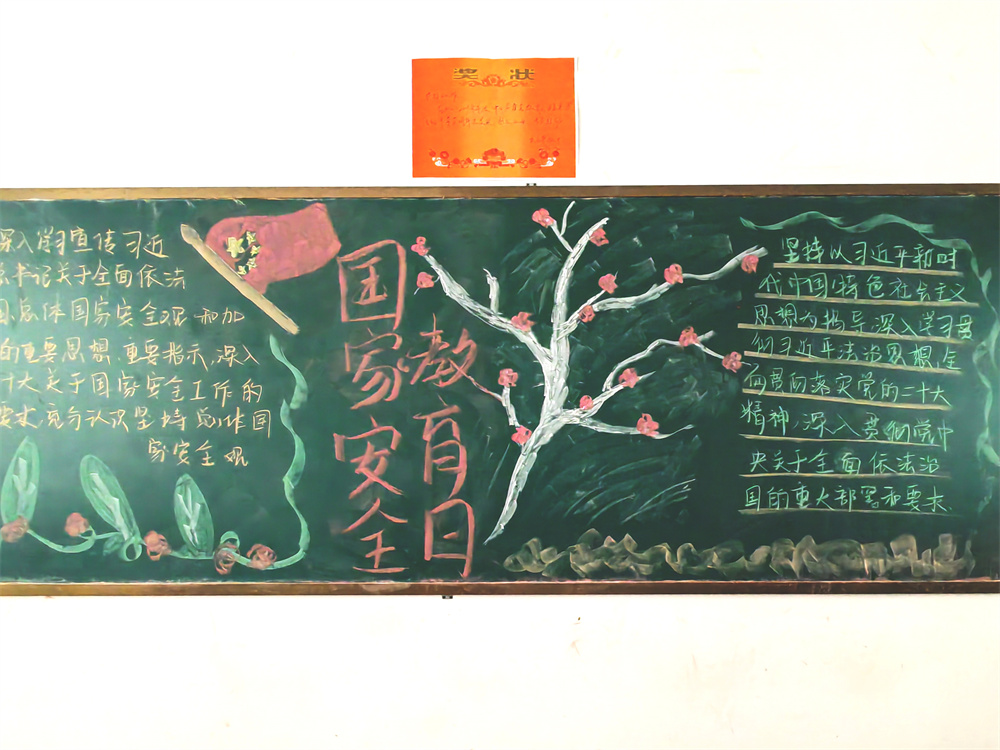 奖状
深入学习宣传习近
总书记关于全面依法
国总体国家安全观和加
的重要思想、重要指示，深入
十大关于国家安全工作的
要求，充分认识坚持总体国
家安全观
国家安全
教育日
坚持以习近平新时
代中国特色社会主义
思想为指导，深入学习贯
彻习近平法治思想，全
面贯彻落实党的二十大
精神，深入贯彻党中
央关于全面依法治
国的重大部署和要求.